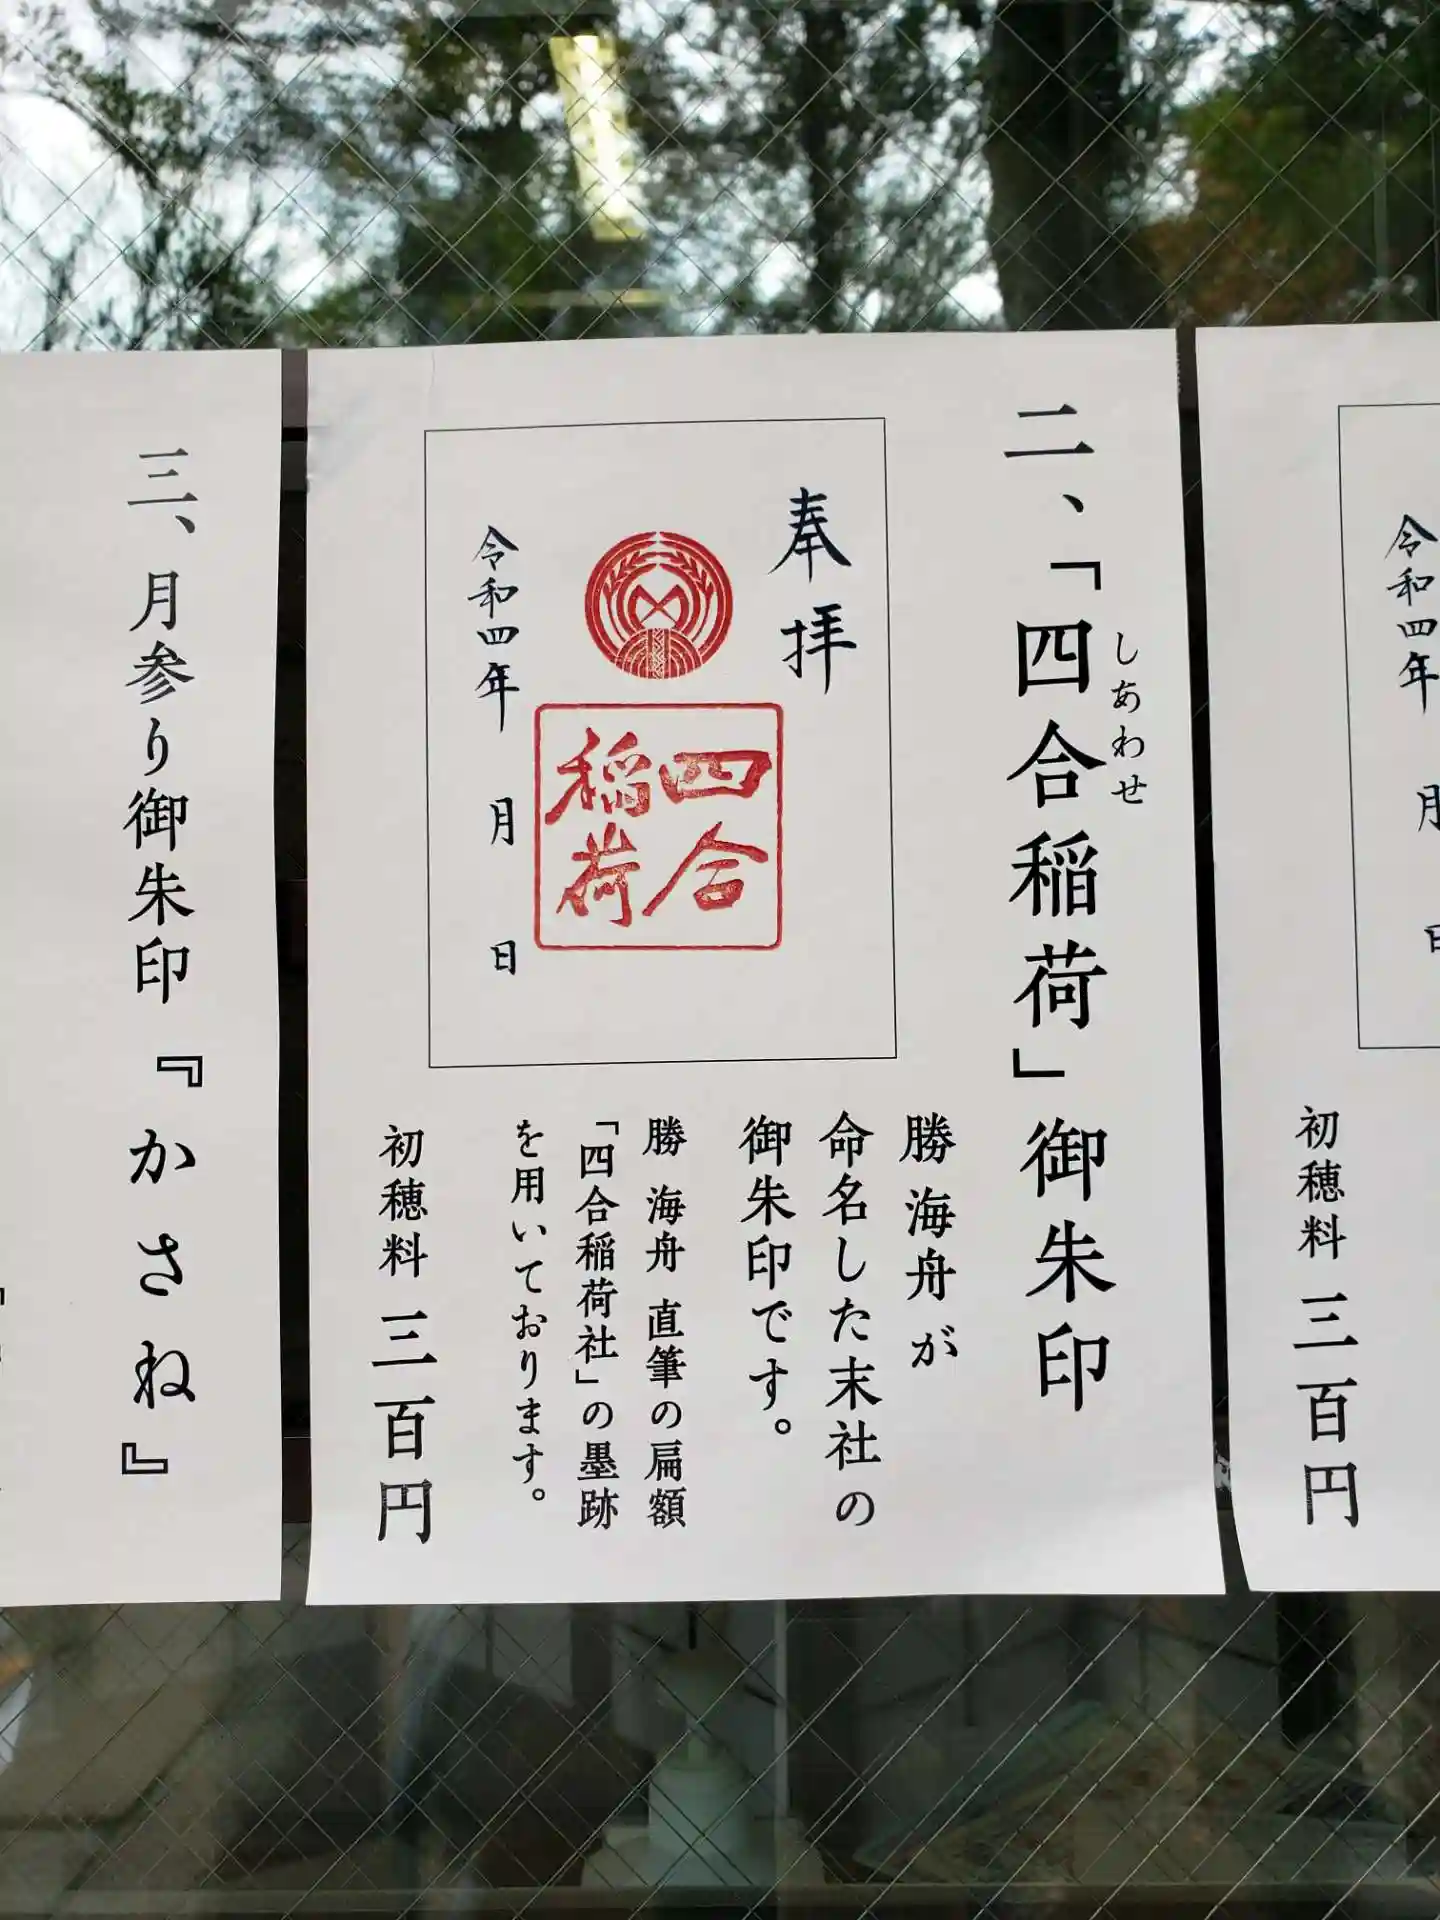 初穂料 三百円
令和四年 月 日
二、「四合稲荷」御朱印
しあわせ
奉拝
四合
稲荷
令和四年 月 日
勝 海舟が
命名した末社の
御朱印です。
勝 海舟 直筆の扁額
「四合稲荷社」の墨跡
を用いております。
初穂料 三百円
三、月参り御朱印『かさね』